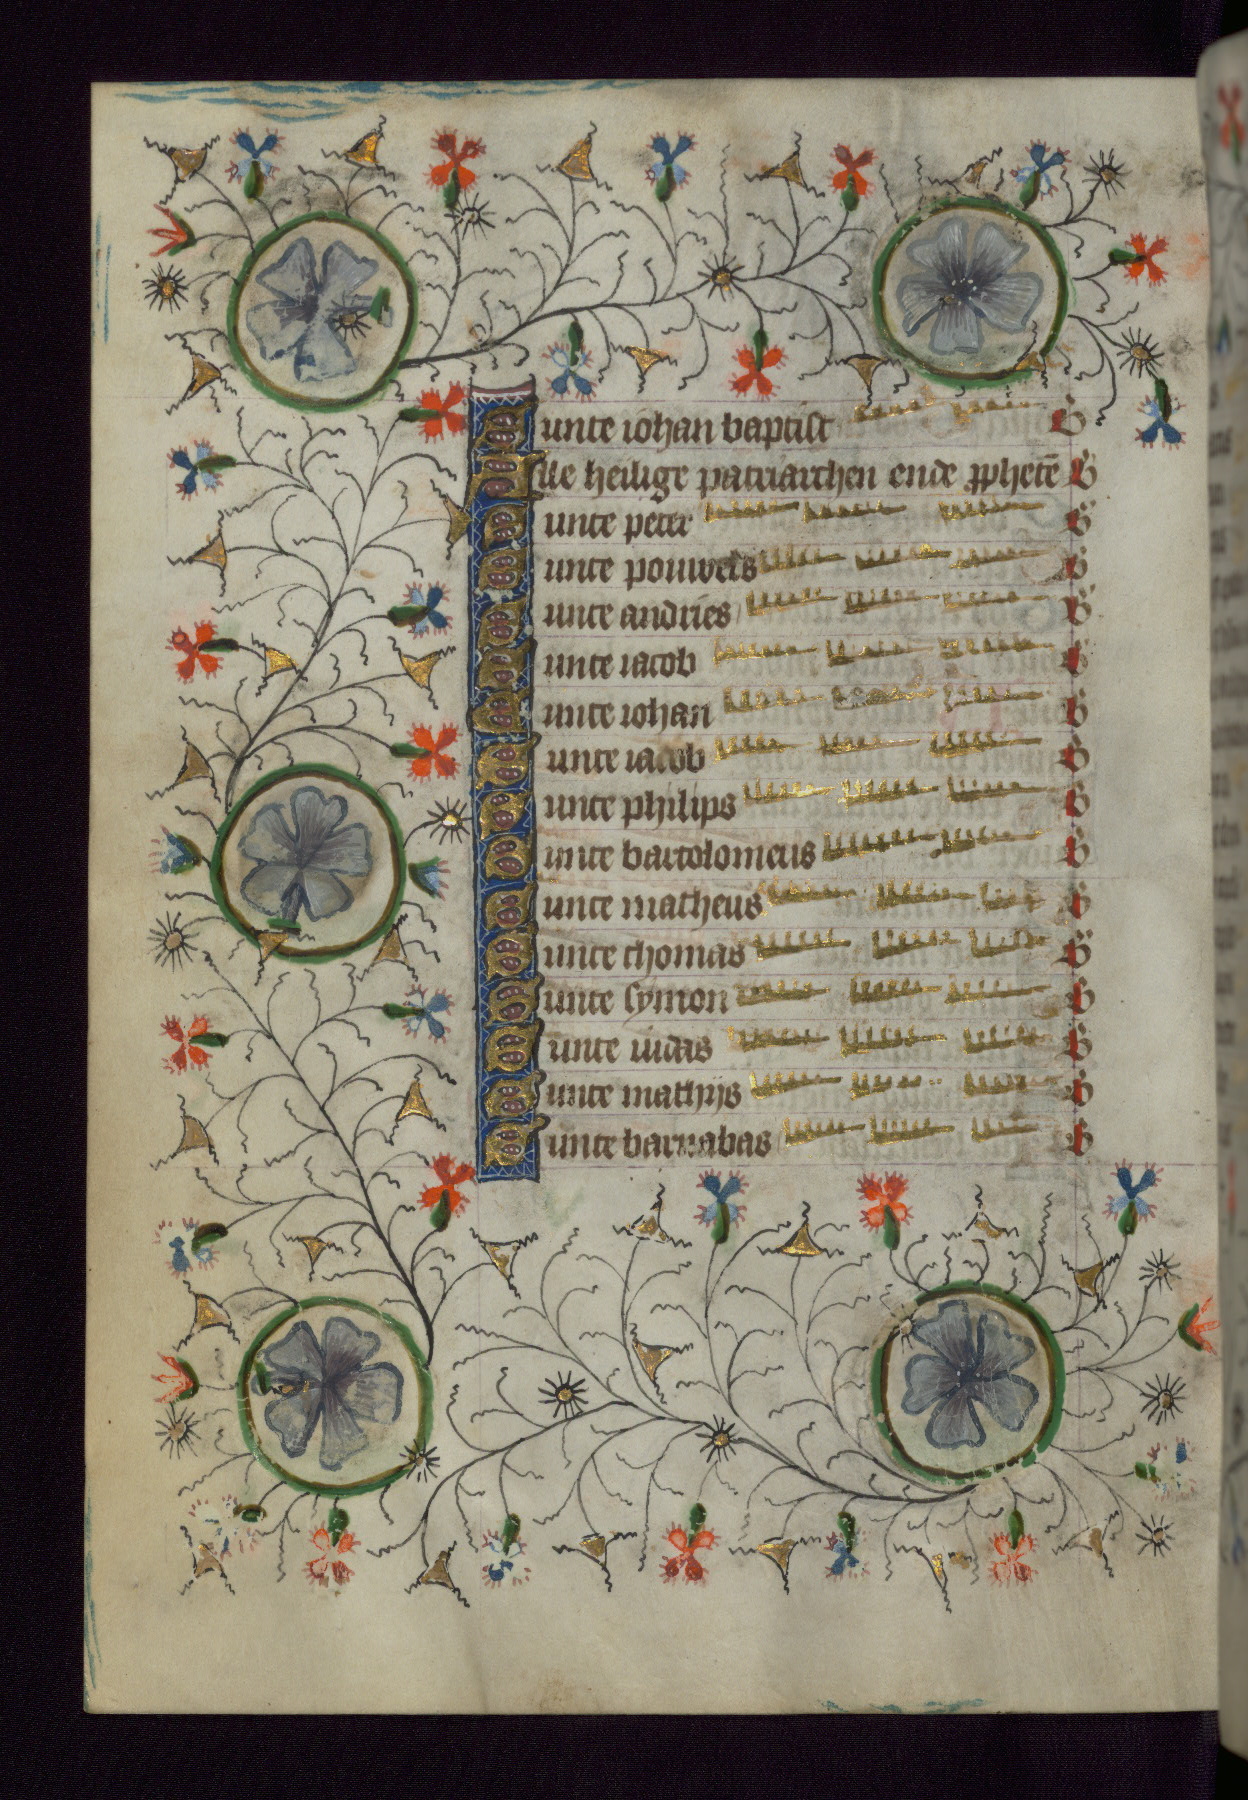 Sunte iohan baptist B
Alle heilige patriarchen ende ꝓphetē B
Sunte peter B
Sunte pouwels B
Sunte andries B
Sunte iacob B
Sunte iohan B
Sunte iacob B
Sunte philips B
Sunte bartolomeus B
Sunte matheus B
Sunte thomas B
Sunte symon B
Sunte iudas B
Sunte mathijs B
Sunte barnabas B